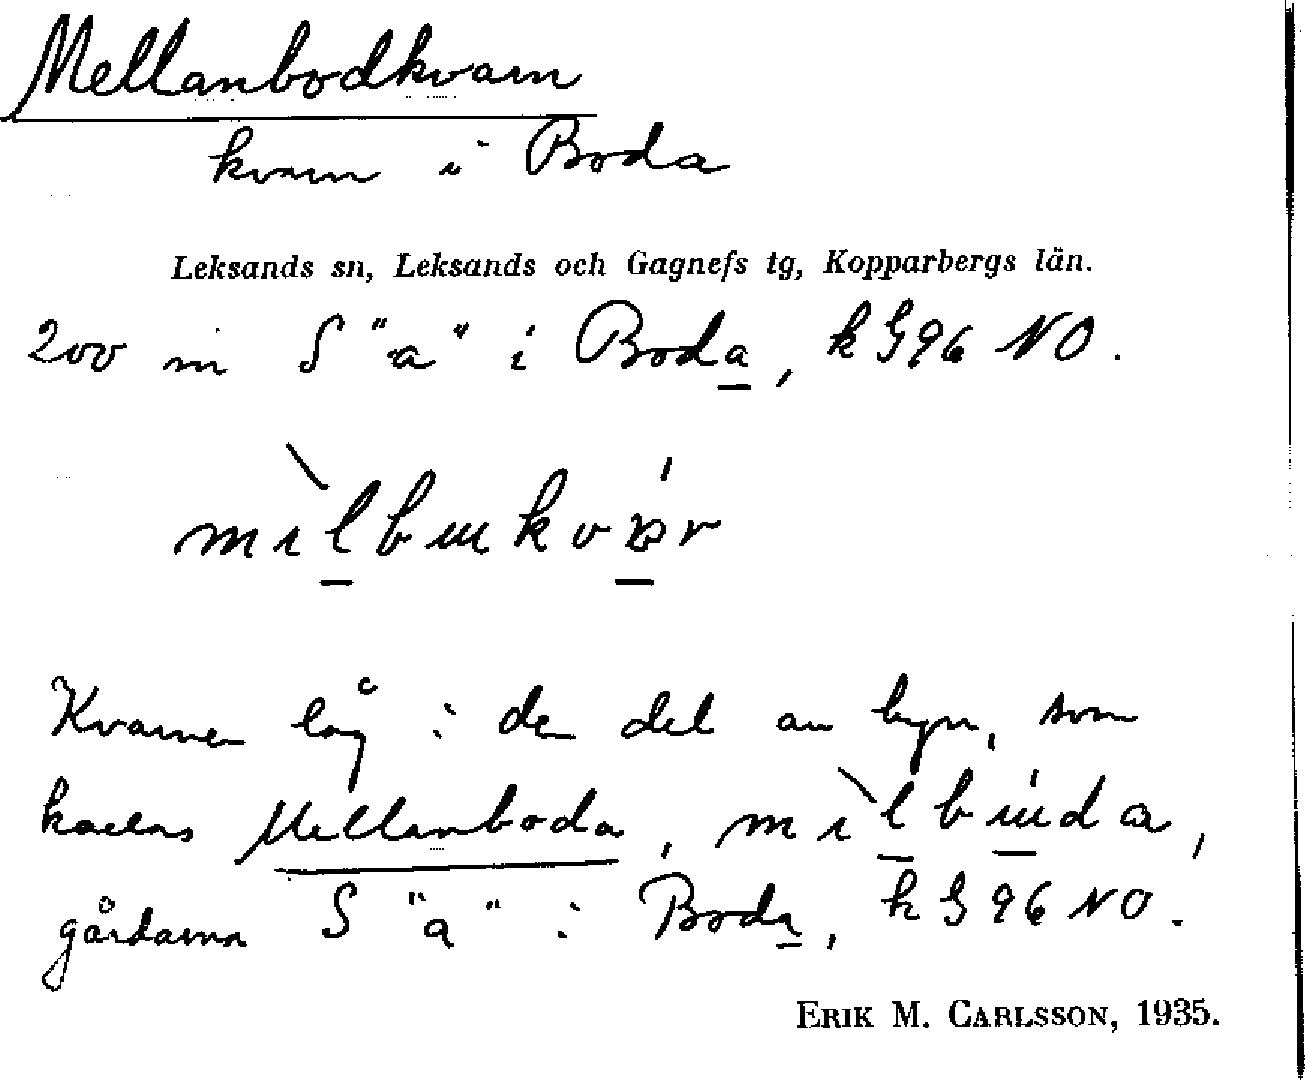 Mellanbodkvarn
kvarn i Boda
Leksands sn, Leksands och Gagnefs tg, Kopparbergs län.
200 m S "a" i Boda, k G 96 NO.
Kvarnen låg i den del av byn, som
kallas Mellanboda,
gårdarna S "a" i Boda, k G 96 NO.
ERIK M. CARLSSON, 1935.